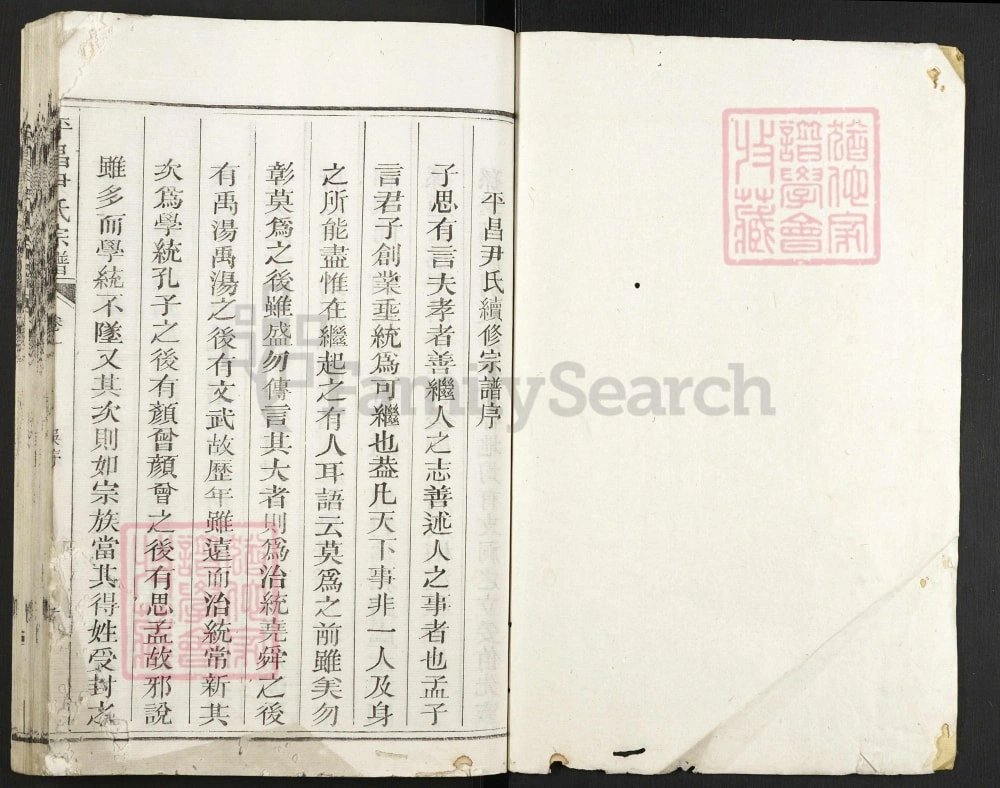 平昌尹氏續修宗譜序
子思有言夫孝者善繼人之志善述人之事者也孟子
言君子創業垂統爲可繼也葢凡天下事非一人及身
之所能盡惟在繼起之有人耳語云莫爲之前雖美勿
彰莫爲之後雖盛勿傳言其大者則爲治統堯舜之後
有禹湯禹湯之後有文武故歷年雖遠而治統常新其
次爲學統孔子之後有顏曾顏曾之後有思孟故邪說
雖多而學統不墜又其次則如宗族當其得姓受封之
平昌尹氏宗譜
卷
譜學會
收藏
FamilySearch